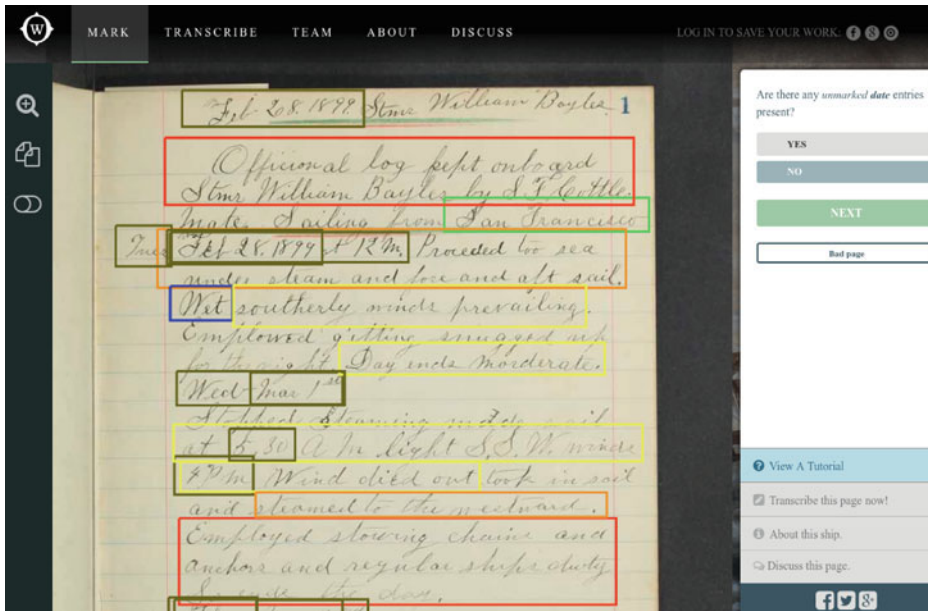 W
MARK
TRANSCRIBE
TEAM
ABOUT
DISCUSS
LOG IN TO SAVE YOUR WORK:
Feb 28. 1899. Stmr William Bayles. 1
Officional log kept onboard
Stmr William Bayler by S. F. Cottle.
Mate. Sailing from San Francisco
Tues Feb 28. 1899 at 12 M. Proceded too sea
under steam and fore and aft sail.
Wet southerly winds prevailing.
Employed gitting snugged up
for the night. Day ends morderate.
Wed Mar 1st
Stopped steaming made sail
at 5.30 A M light S.S.W. winds
4 P M Wind died out took in sail
and steamed to the westward.
Employed stowing chains and
anchors and regular ships duty
the day.
Are there any unmarked date entries
present?
YES
NO
NEXT
Bad page
View A Tutorial
Transcribe this page now!
About this ship.
Discuss this page.